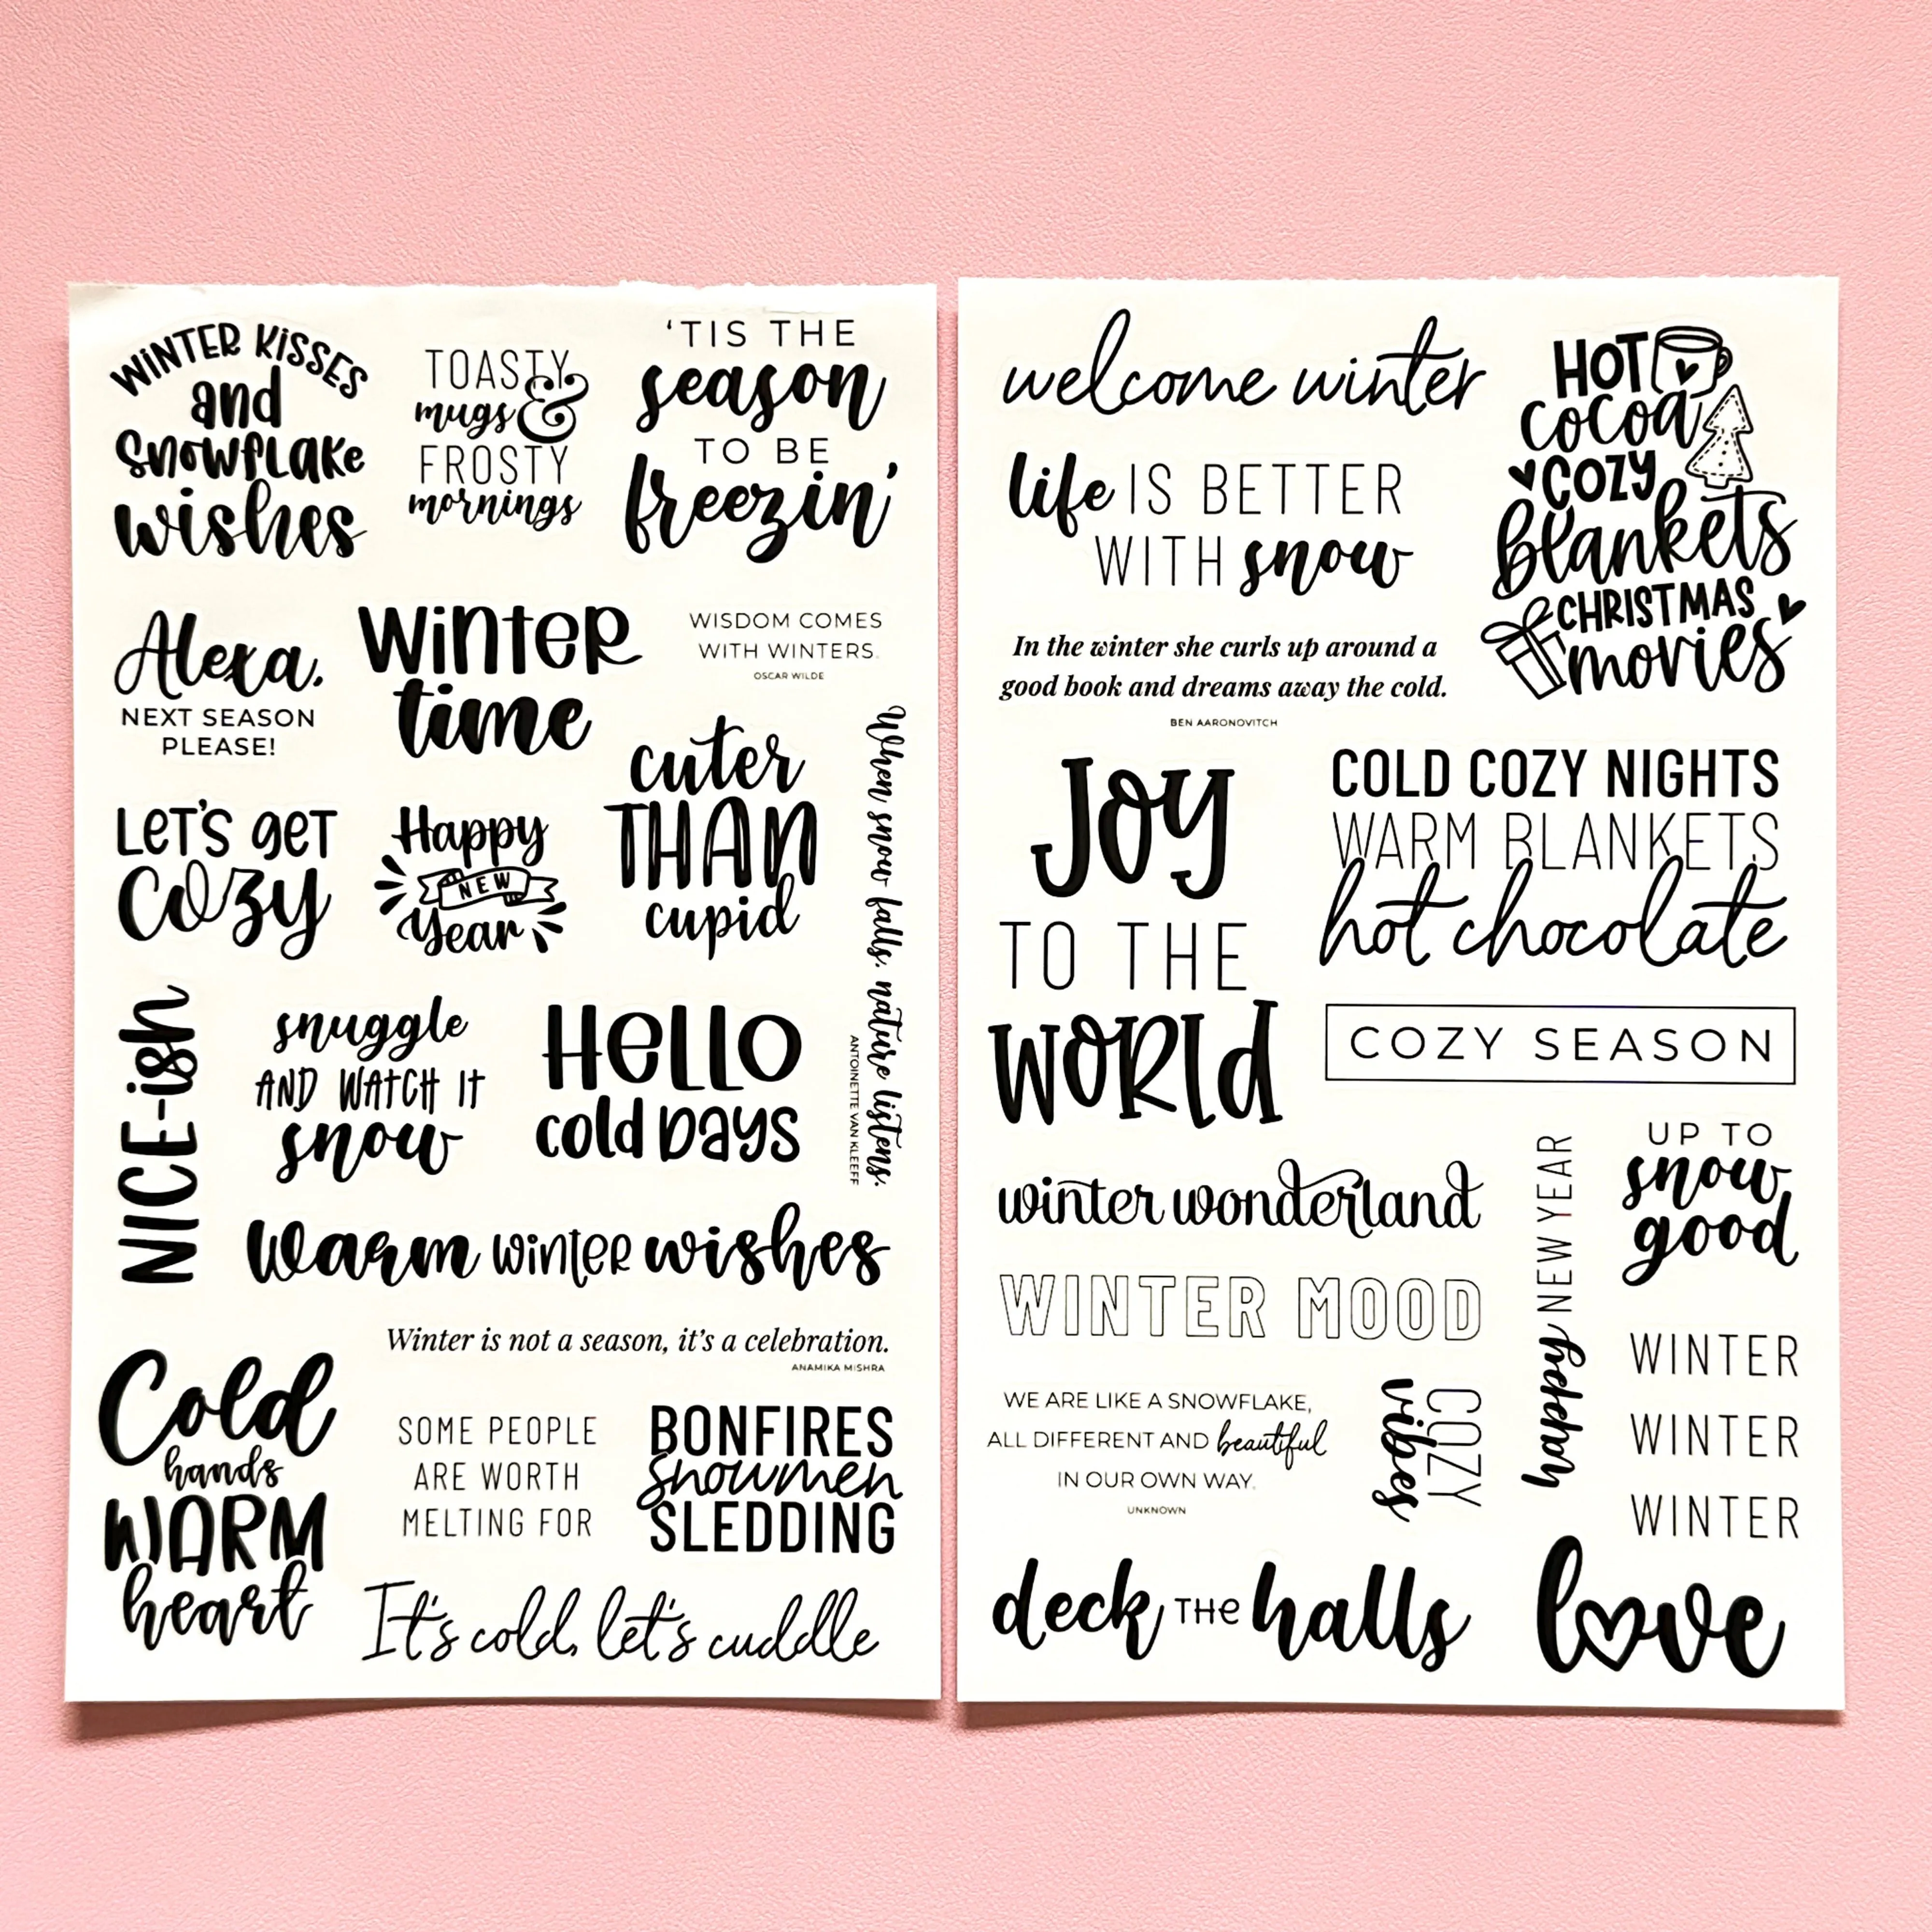 WiNTER KiSSES
and
SnowfLAKe
wishes
TOASTY
mugs &
FROSTY
mornings
'TIS THE
season
TO BE
freezin'
Alexa,
NEXT SEASON
PLEASE!
WinteR
time
WISDOM COMES
WITH WINTERS.
OSCAR WILDE
LeT'S geT
Cozy
Happy
NEW
Year
cuter
THAN
cupid
When snow falls, nature listens.
ANTOINETTE VAN KLEEFF
NICE-ish
snuggle
AND WATCH IT
snow
HeLLO
cold DAYS
warm winteR wishes
Winter is not a season, it's a celebration.
ANAMIKA MISHRA
Cold
hands
WARM
heart
SOME PEOPLE
ARE WORTH
MELTING FOR
BONFIRES
snowmen
SLEDDING
It's cold, let's cuddle
welcome winter
life IS BETTER
WITH snow
HOT
cocoa
COZY
blankets
CHRISTMAS
movies
In the winter she curls up around a
good book and dreams away the cold.
BEN AARONOVITCH
JOY
TO THE
WORLd
COLD COZY NIGHTS
WARM BLANKETS
hot chocolate
COZY SEASON
winter wonderland
WINTER MOOD
happy NEW YEAR
UP TO
snow
good
WE ARE LIKE A SNOWFLAKE,
ALL DIFFERENT AND beautiful
IN OUR OWN WAY.
UNKNOWN
COZY
vibes
WINTER
WINTER
WINTER
deck THe halls
love